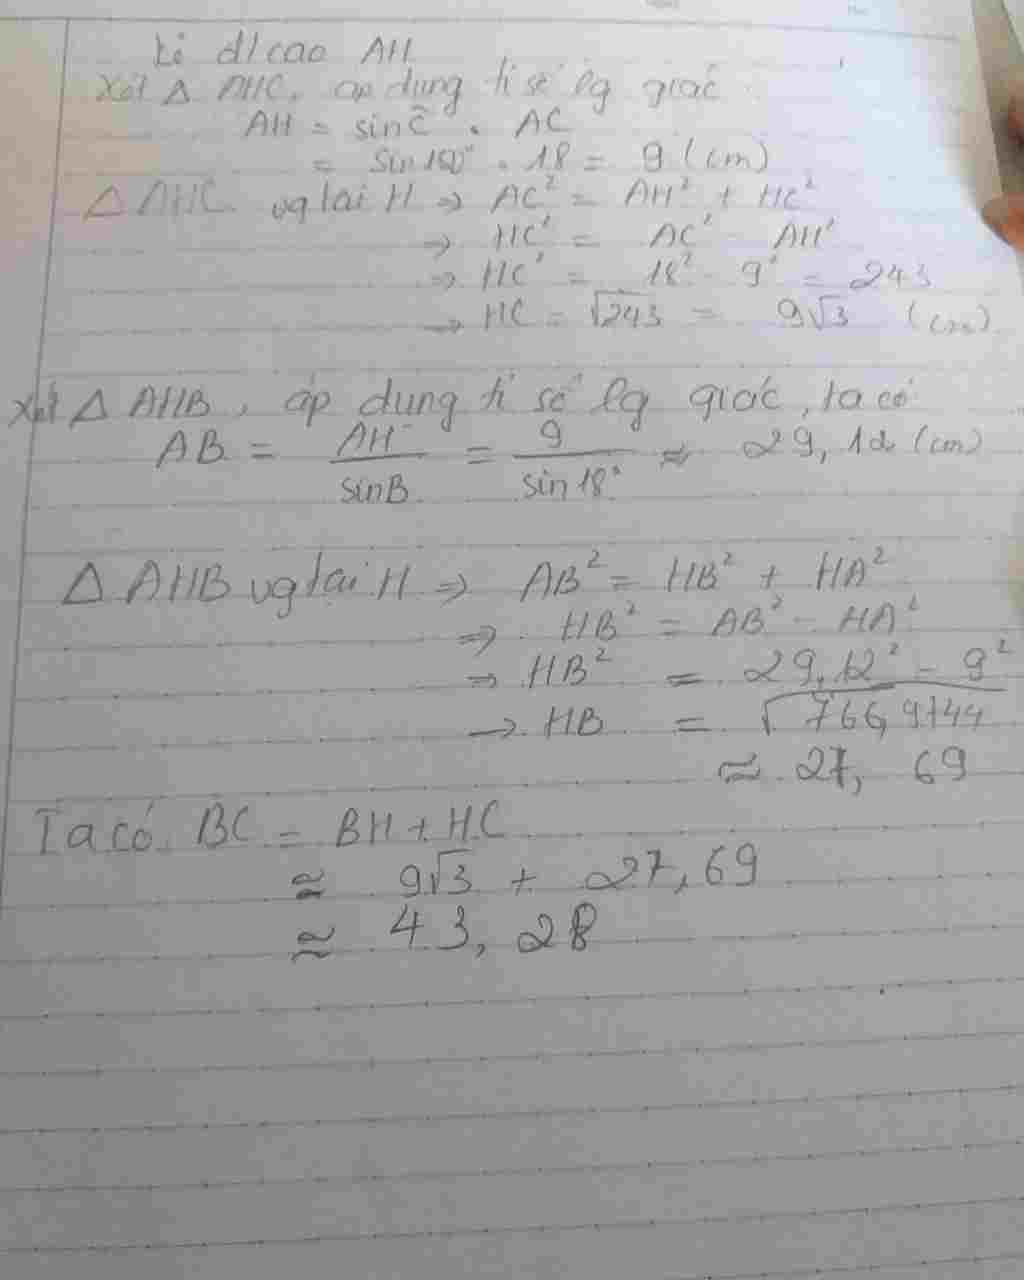 kẻ đ/cao AH
Xét △ AHC, áp dụng tỉ số lg giác
AH = sin C . AC
= Sin 150° . 18 = 9 (cm)
△ AHC vg tại H => AC² = AH² + HC²
=> HC² = AC² - AH²
=> HC² = 18² - 9² = 243
=> HC = √243 = 9√3 (cm)
Xét △ AHB, áp dụng tỉ số lg giác, ta có
AB = AH / sinB = 9 / sin 18° ≈ 29,12 (cm)
△ AHB vg tại H => AB² = HB² + HA²
=> HB² = AB² - HA²
=> HB² = 29,12² - 9²
→ HB = √766,9744
≈ 27,69
Ta có BC = BH + HC
≈ 9√3 + 27,69
≈ 43,28